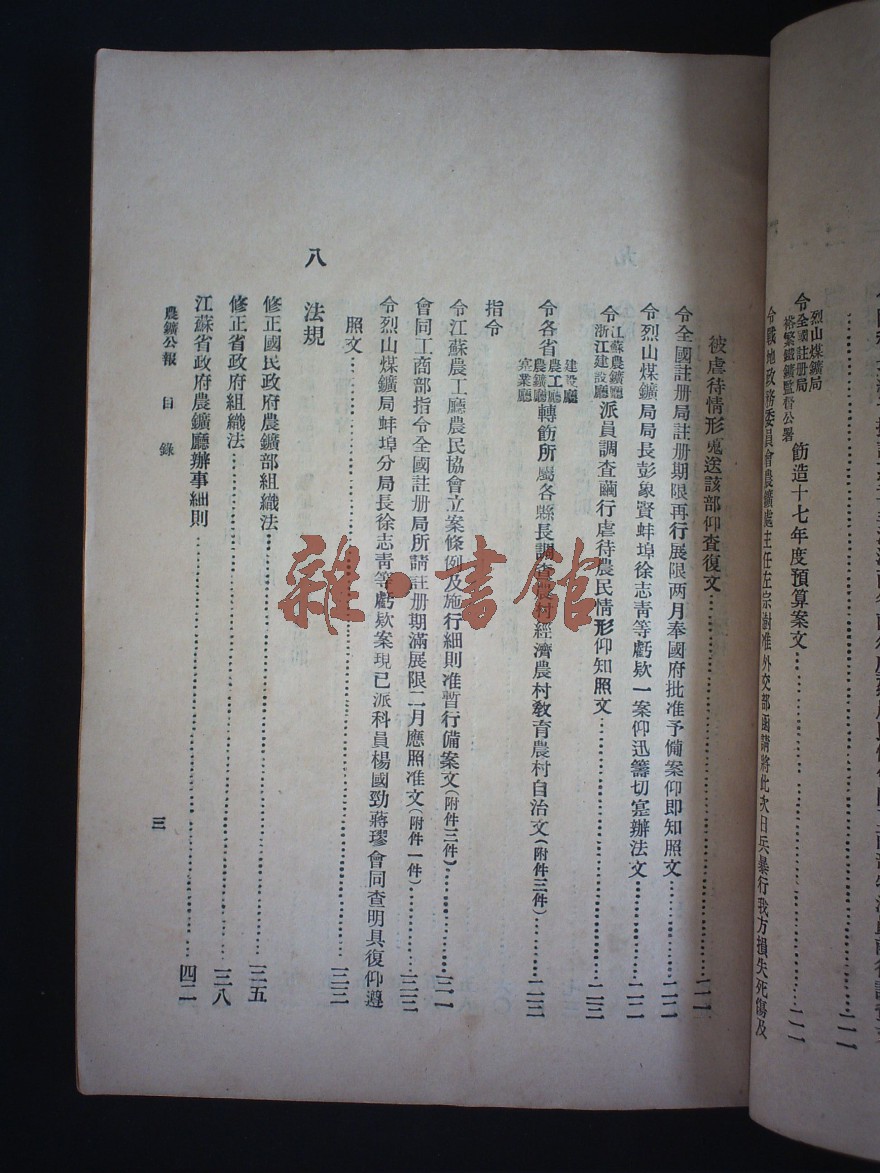 烈山煤鑛局
令全國註册局
裕繁鐵鑛監督公署
飭造十七年度預算案文
令戰地政務委員會農鑛處主任左宗澍准外交部函請將此次日兵暴行我方損失死傷及
被虐待情形 送該部仰査復文
令全國註册局註册期限再行展限两月奉國府批准予備案仰即知照文
令烈山煤鑛局局長彭象賢蚌埠徐志靑等虧欵一案仰迅籌切寔辦法文
令江蘇農鑛廳
浙江建設廳
派員調査繭行虐待農民情形仰知照文
令各省
建設廳
農工廳
農鑛廳
寔業廳
轉飭所屬各縣長調查農村經濟農村敎育農村自治文(附件三件)
指令
令江蘇農工廳農民協會立案條例及施行細則准暫行備案文(附件三件)
會同工商部指令全國註册局所請註册期滿展限二月應照准文(附件一件)
令烈山煤鑛局蚌埠分局長徐志靑等虧欵案現已派科員楊國勁蔣璆會同查明具復仰遵
照文
八 法規
修正國民政府農鑛部組織法 三五
修正省政府組織法 三八
江蘇省政府農鑛廳辦事細則 四二
農鑛公報 目錄
三
雜·書館